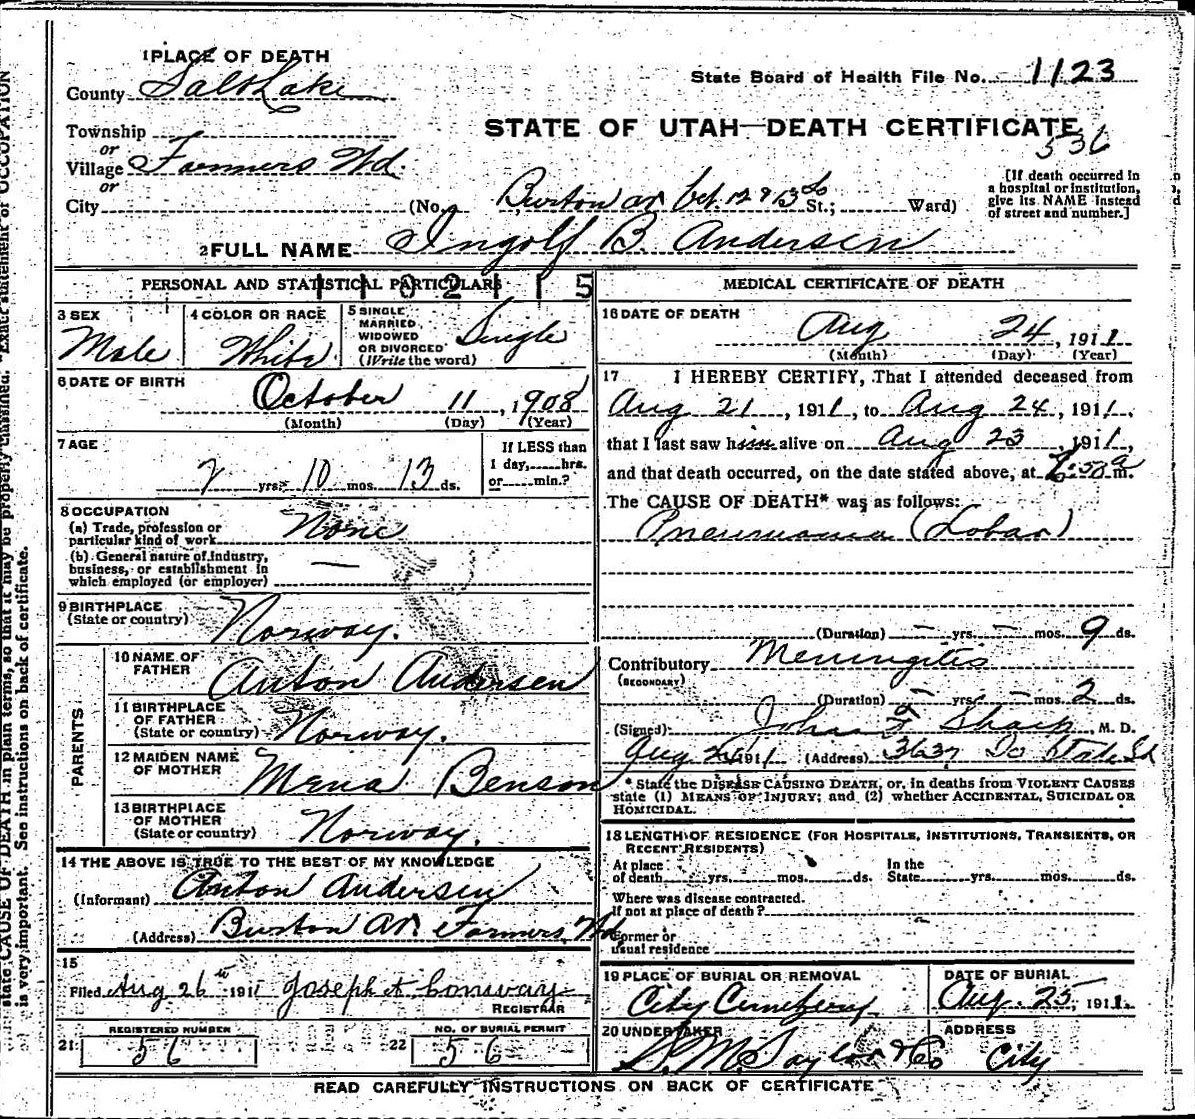 1 PLACE OF DEATH
State Board of Health File No. 1123
County Salt Lake
STATE OF UTAH—DEATH CERTIFICATE
536
Township
or
Village Farmers Wd.
or
City (No. Burton av bet. 12 & 13 So St.; Ward)
[If death occurred in
a hospital or institution,
give its NAME instead
of street and number.]
2 FULL NAME Ingolf B. Andersen
1102115
PERSONAL AND STATISTICAL PARTICULARS
3 SEX Male
4 COLOR OR RACE White
5 SINGLE, MARRIED, WIDOWED OR DIVORCED (Write the word) Single
6 DATE OF BIRTH October 11, 1908
(Month) (Day) (Year)
7 AGE 2 yrs. 10 mos. 13 ds.
If LESS than
1 day, hrs.
or min.?
8 OCCUPATION
(a) Trade, profession or
particular kind of work None
(b) General nature of industry,
business, or establishment in
which employed (or employer) —
9 BIRTHPLACE
(State or country) Norway.
PARENTS
10 NAME OF
FATHER Anton Andersen
11 BIRTHPLACE
OF FATHER
(State or country) Norway.
12 MAIDEN NAME
OF MOTHER Mena Benson
13 BIRTHPLACE
OF MOTHER
(State or country) Norway.
14 THE ABOVE IS TRUE TO THE BEST OF MY KNOWLEDGE
(Informant) Anton Andersen
(Address) Burton Av Farmers Wd
15
Filed Aug 26th 1911 Joseph A Conway
REGISTRAR
21 REGISTERED NUMBER 56
22 NO. OF BURIAL PERMIT 56
MEDICAL CERTIFICATE OF DEATH
16 DATE OF DEATH
Aug 24, 1911
(Month) (Day) (Year)
17 I HEREBY CERTIFY, That I attended deceased from
Aug 21, 1911, to Aug 24, 1911,
that I last saw him alive on Aug 23, 1911,
and that death occurred, on the date stated above, at m.
The CAUSE OF DEATH* was as follows:
Pneumonia (Lobar)
(Duration) — yrs. — mos. 9 ds.
Contributory Meningitis
(SECONDARY)
(Duration) — yrs. — mos. 2 ds.
(Signed) John M. D.
Aug 1911 (Address) 3637 So State St
* State the DISEASE CAUSING DEATH, or, in deaths from VIOLENT CAUSES
state (1) MEANS OF INJURY; and (2) whether ACCIDENTAL, SUICIDAL OR
HOMICIDAL.
18 LENGTH OF RESIDENCE (FOR HOSPITALS, INSTITUTIONS, TRANSIENTS, OR
RECENT RESIDENTS)
At place
of death yrs. mos. ds.
In the
State yrs. mos. ds.
Where was disease contracted.
If not at place of death?
Former or
usual residence
19 PLACE OF BURIAL OR REMOVAL
City Cemetery
DATE OF BURIAL
Aug. 25, 1911.
20 UNDERTAKER
S. M. Taylor & Co
ADDRESS
City
READ CAREFULLY INSTRUCTIONS ON BACK OF CERTIFICATE
state CAUSE OF DEATH in plain terms, so that it may be properly classified. "Exact statement of OCCUPATION
is very important. See instructions on back of certificate.